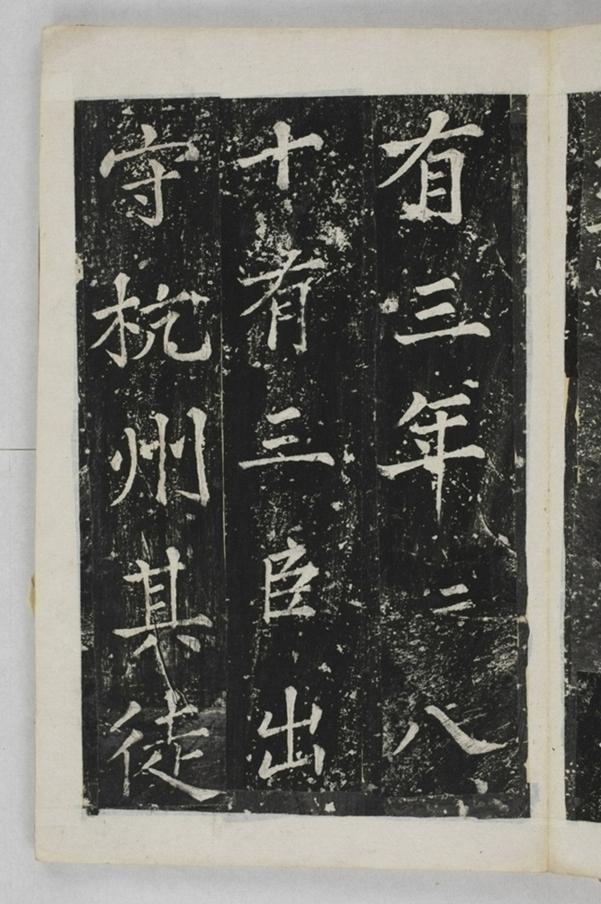 有三年〻八
十有三臣出
守杭州其徒